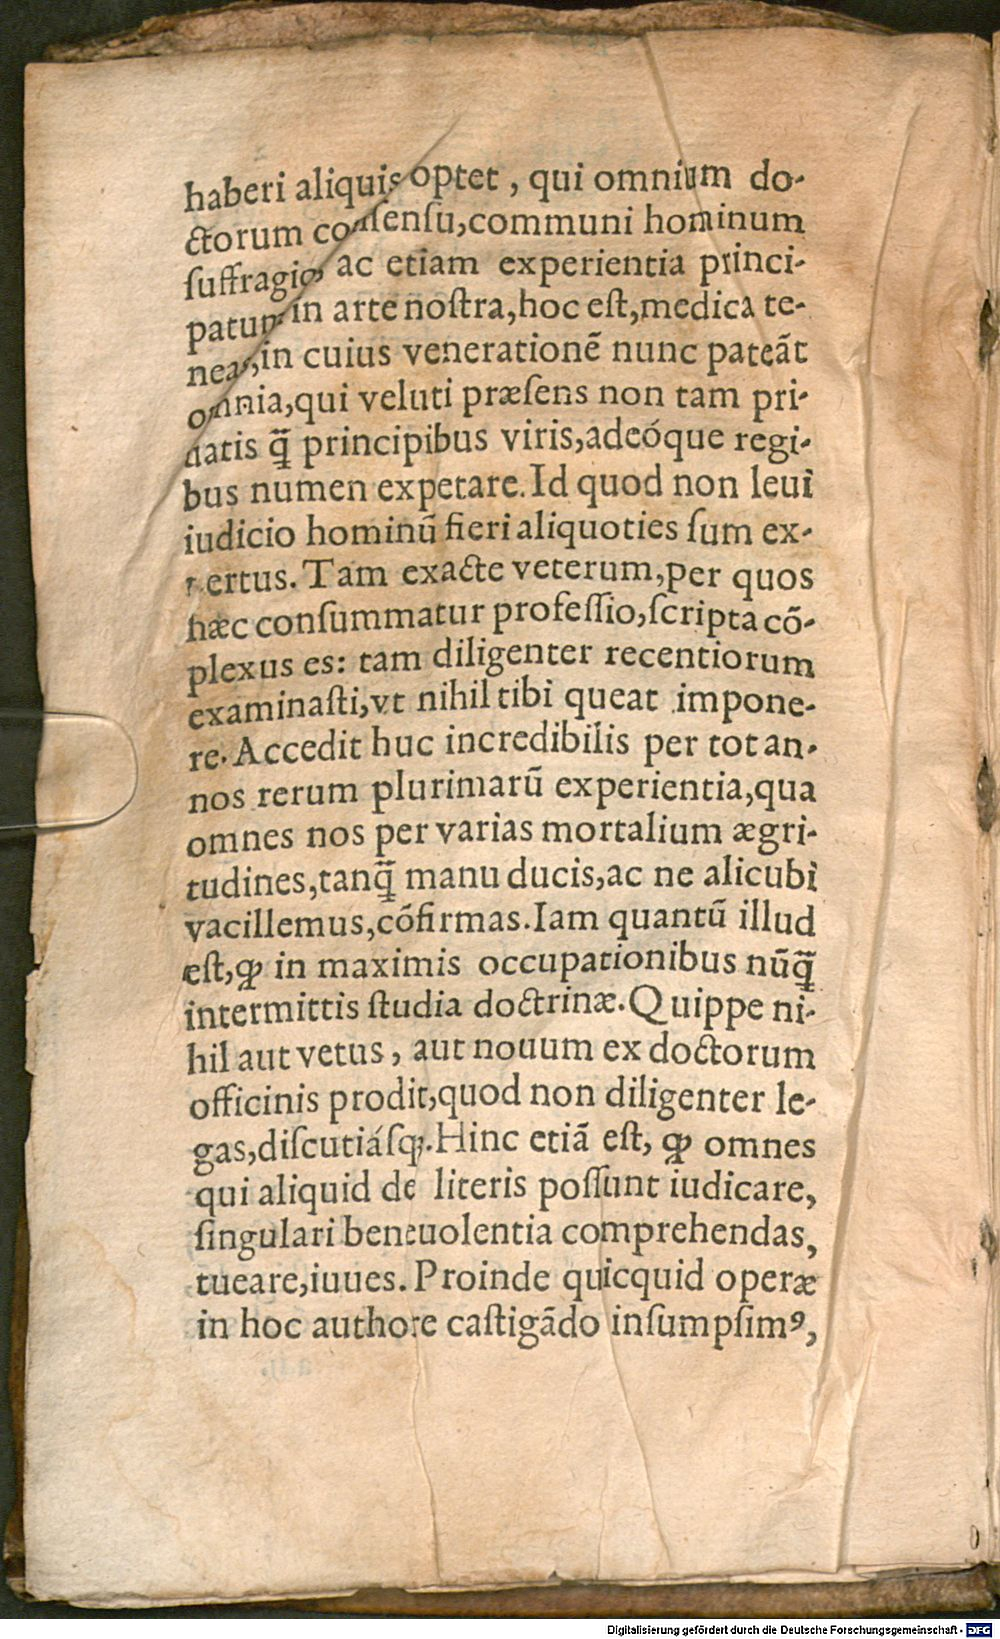 haberi aliquis optet, qui omnium do-
ctorum conſenſu, communi hominum
ſuffragio, ac etiam experientia princi-
patum in arte noſtra, hoc eſt, medica te-
neas, in cuius venerationē nunc pateāt
omnia, qui veluti præſens non tam pri-
uatis ꝗ̃ principibus viris, adeóque regi-
bus numen expetare. Id quod non leui
iudicio hominū fieri aliquoties ſum ex-
pertus. Tam exacte veterum, per quos
hæc conſummatur profeſſio, ſcripta cō-
plexus es: tam diligenter recentiorum
examinaſti, vt nihil tibi queat impone-
re. Accedit huc incredibilis per tot an-
nos rerum plurimarū experientia, qua
omnes nos per varias mortalium ægri-
tudines, tanꝗ̃ manu ducis, ac ne alicubi
vacillemus, cōfirmas. Iam quantū illud
eſt, ꝙ in maximis occupationibus nūꝗ̃
intermittis ſtudia doctrinæ. Quippe ni-
hil aut vetus, aut nouum ex doctorum
officinis prodit, quod non diligenter le-
gas, diſcutiáſq;. Hinc etiā eſt, ꝙ omnes
qui aliquid de literis poſſunt iudicare,
ſingulari beneuolentia comprehendas,
tueare, iuues. Proinde quicquid operæ
in hoc authore caſtigādo inſumpſimꝰ,
Digitalisierung gefördert durch die Deutsche Forschungsgemeinschaft - DFG